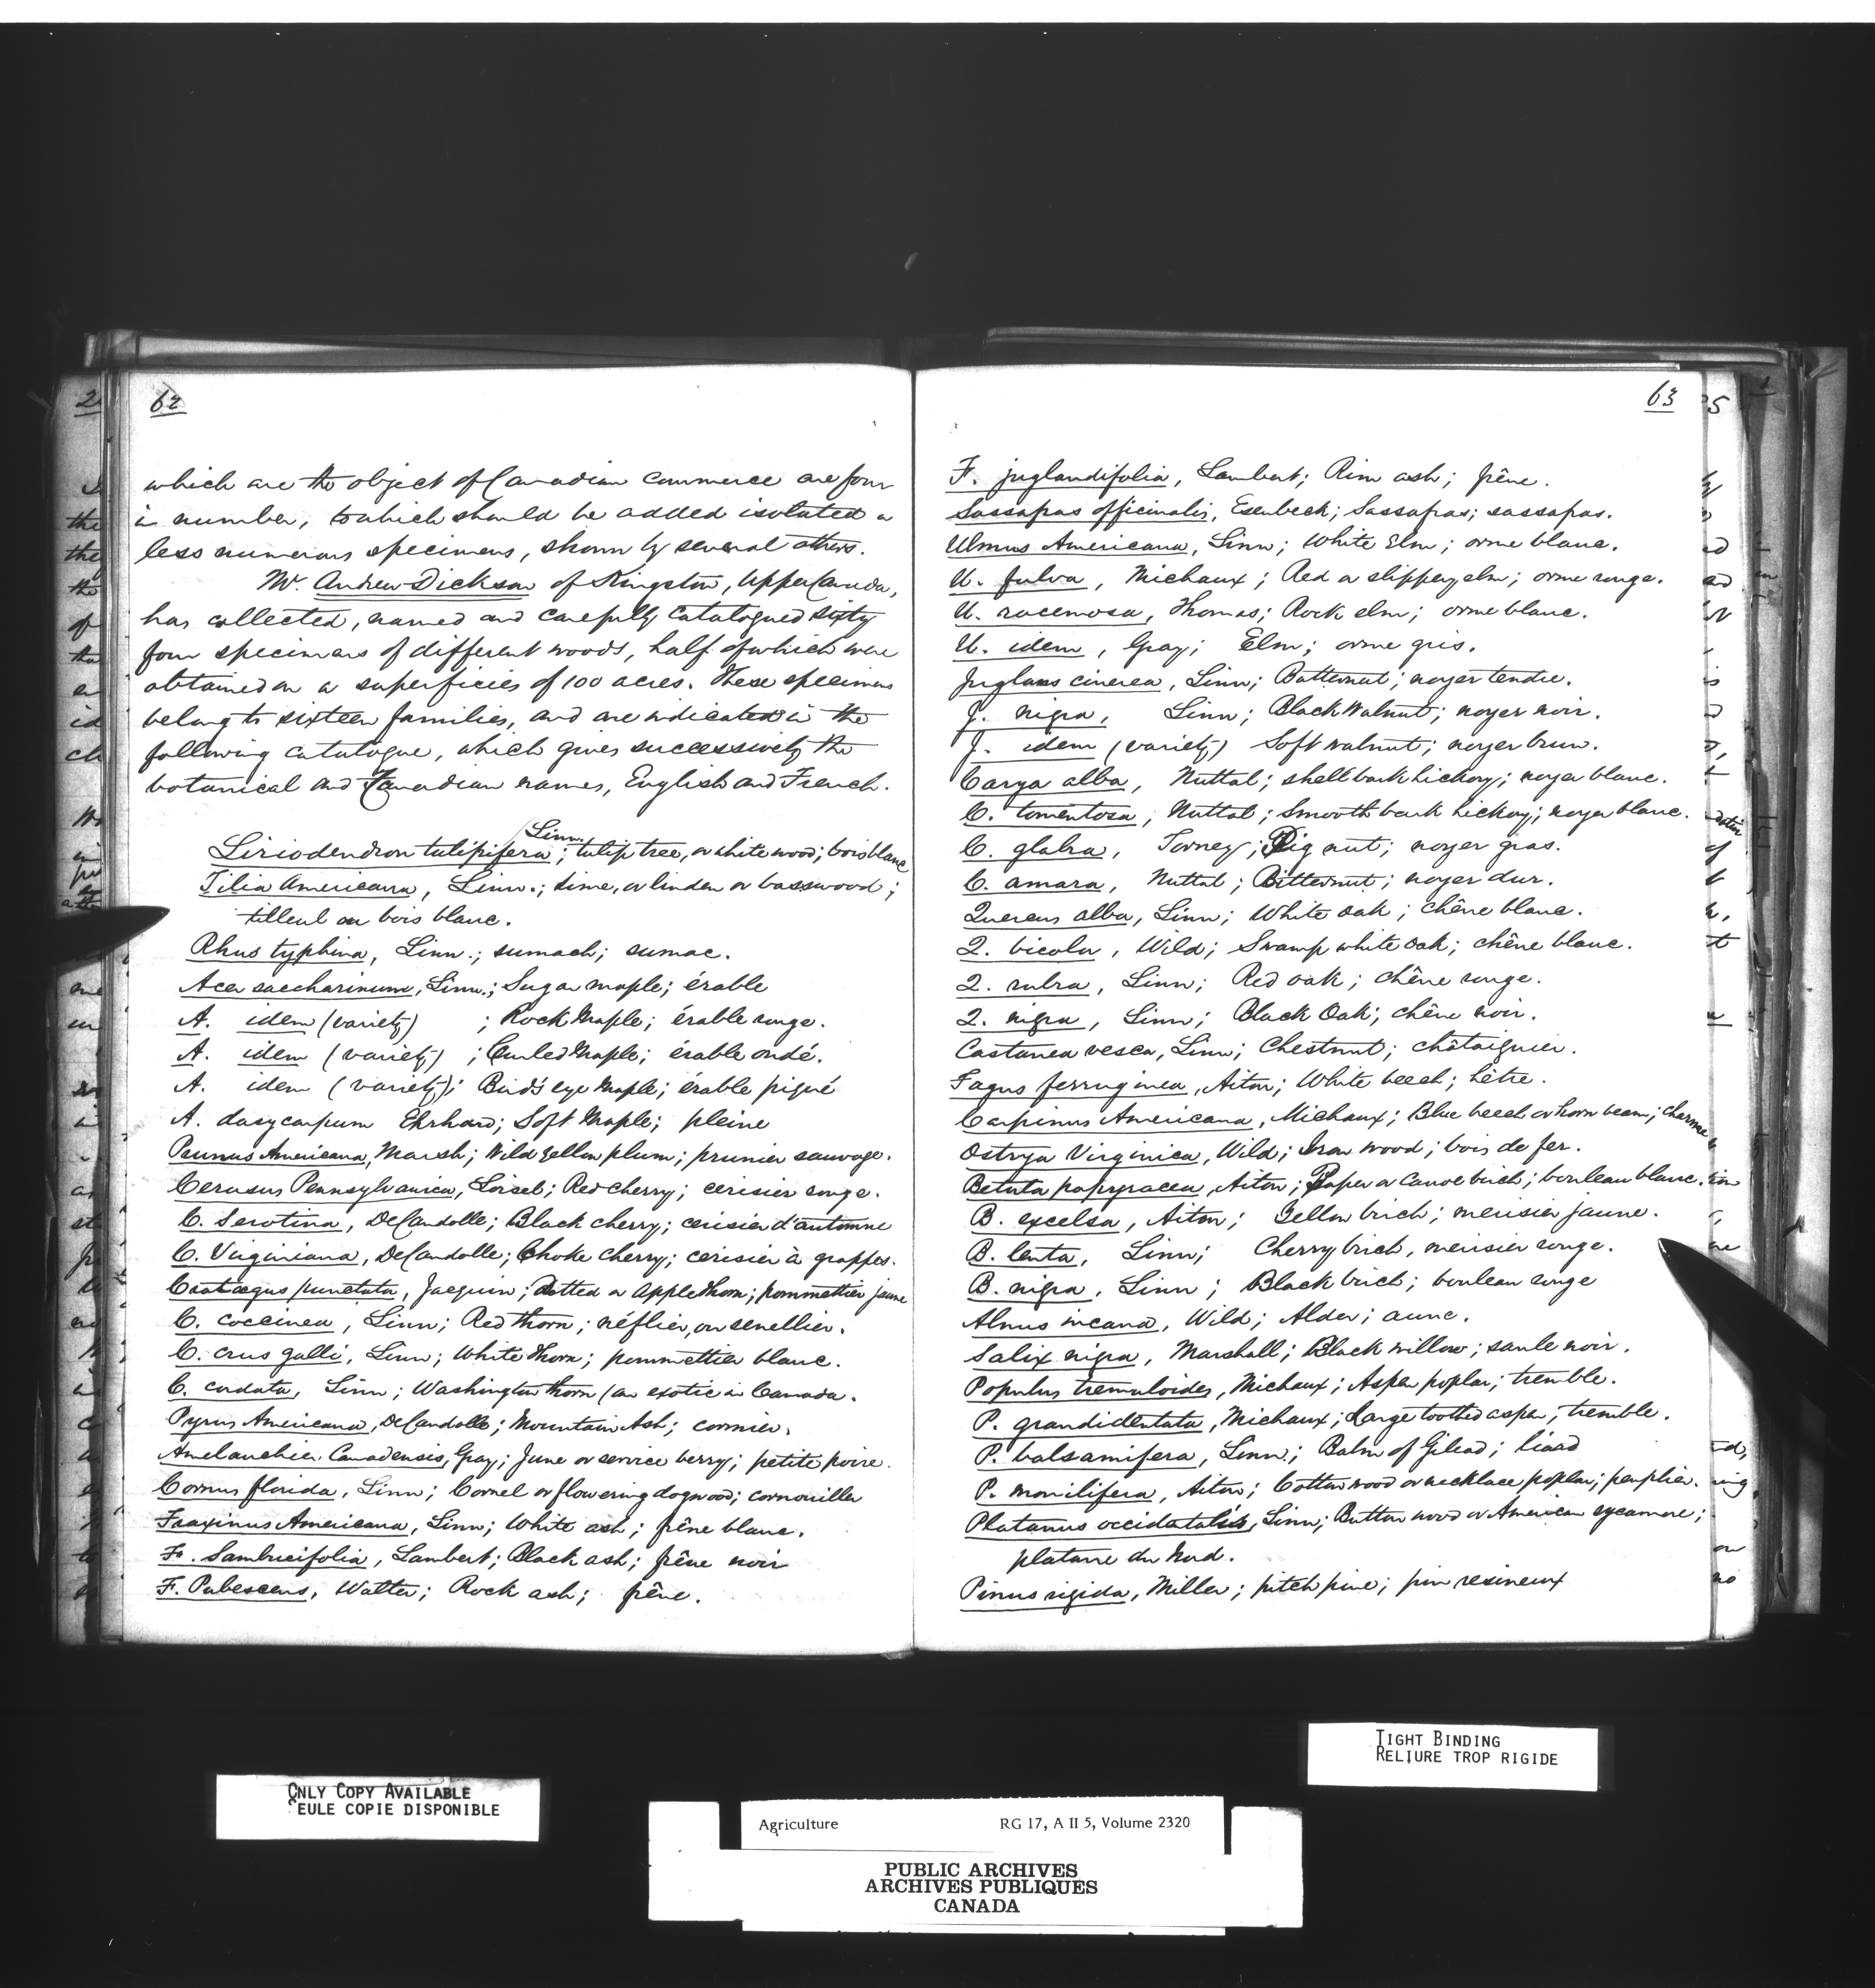 62
which are the object of Canadian commerce are four
in number, to which should be added isolated or
less numerous specimens, shown by several others.
Mr. Andrew Dickson of Kingston, Upper Canada,
has collected, named and carefully catalogued sixty
four specimens of different woods, half of which were
obtained on a superficies of 100 acres. These specimens
belong to sixteen families, and are indicated in the
following catalogue, which gives successively the
botanical and Canadian names, English and French.
Liriodendron tulipifera, Linn.; tulip tree, or white wood; bois blanc
Tilia Americana, Linn.; lime, or linden or basswood;
tilleul ou bois blanc.
Rhus typhina, Linn.; sumach; sumac.
Acer saccharinum, Linn.; Sugar maple; érable
A. idem (variety) ; Rock Maple; érable rouge.
A. idem (variety) ; Curled Maple; érable ondé.
A. idem (variety); Bird's eye Maple; érable piqué
A. dasycarpum Ehrhard; Soft Maple; pleine
Prunus Americana, Marsh; Wild yellow plum; prunier sauvage.
Cerasus Pennsylvanica, Loisel; Red cherry; cerisier rouge.
C. Serotina, DeCandolle; Black cherry; cerisier d'automne
C. Virginiana, DeCandolle; Choke cherry; cerisier à grappes.
Crataegus punctata, Jacquin; Dotted or Apple thorn; pommettier jaune
C. coccinea, Linn; Red thorn; néflier, ou senellier.
C. crus galli, Linn; White thorn; pommettier blanc.
C. cordata, Linn; Washington thorn (an exotic in Canada.
Pyrus Americana, DeCandolle; Mountain Ash; cormier.
Amelanchier Canadensis, Gray; June or service berry; petite poire.
Cornus florida, Linn; Cornel or flowering dogwood; cornouiller
Fraxinus Americana, Linn; White ash; frêne blanc.
F. Sambucifolia, Lambert; Black ash; frêne noir
F. Pubescens, Walter; Rock ash; frêne.
63
F. juglandifolia, Lambert; Rim ash; frêne.
Sassafras officinalis, Esenbeck; Sassafras; sassafras.
Ulmus Americana, Linn; White Elm; orme blanc.
U. fulva, Michaux; Red or slippery elm; orme rouge.
U. racemosa, Thomas; Rock elm; orme blanc.
U. idem, Gray; Elm; orme gris.
Juglans cinerea, Linn; Butternut; noyer tendre.
J. nigra, Linn; Black Walnut; noyer noir.
J. idem (variety) Soft walnut; noyer brun.
Carya alba, Nuttal; shell bark hickory; noyer blanc.
C. tomentosa, Nuttal; Smooth bark hickory; noyer blanc.
C. glabra, Torrey; Pig nut; noyer gras.
C. amara, Nuttal; Bitternut; noyer dur.
Quercus alba, Linn; White oak; chêne blanc.
Q. bicolor, Wild; Swamp white oak; chêne blanc.
Q. rubra, Linn; Red oak; chêne rouge.
Q. nigra, Linn; Black Oak; chêne noir.
Castanea vesca, Linn; Chestnut; châtaignier.
Fagus ferruginea, Aiton; White beech; hêtre.
Carpinus Americana, Michaux; Blue beech or horn beam; charme
Ostrya Virginica, Wild; Iron wood; bois de fer.
Betula papyracea, Aiton; Paper or Canoe birch; bouleau blanc.
B. excelsa, Aiton; Yellow birch; merisier jaune.
B. lenta, Linn; Cherry birch, merisier rouge.
B. nigra, Linn; Black birch; bouleau rouge
Alnus incana, Wild; Alder; aune.
Salix nigra, Marshall; Black willow; saule noir.
Populus tremuloides, Michaux; Aspen poplar; tremble.
P. grandidentata, Michaux; Large toothed aspen; tremble.
P. balsamifera, Linn.; Balm of Gilead; liard
P. monilifera, Aiton; Cotton wood or necklace poplar; peuplier.
Platanus occidentalis, Linn; Button wood or American sycamore;
platane du Nord.
Pinus rigida, Miller; pitch pine; pin resineux
TIGHT BINDING
RELIURE TROP RIGIDE
ONLY COPY AVAILABLE
SEULE COPIE DISPONIBLE
Agriculture RG 17, A II 5, Volume 2320
PUBLIC ARCHIVES
ARCHIVES PUBLIQUES
CANADA